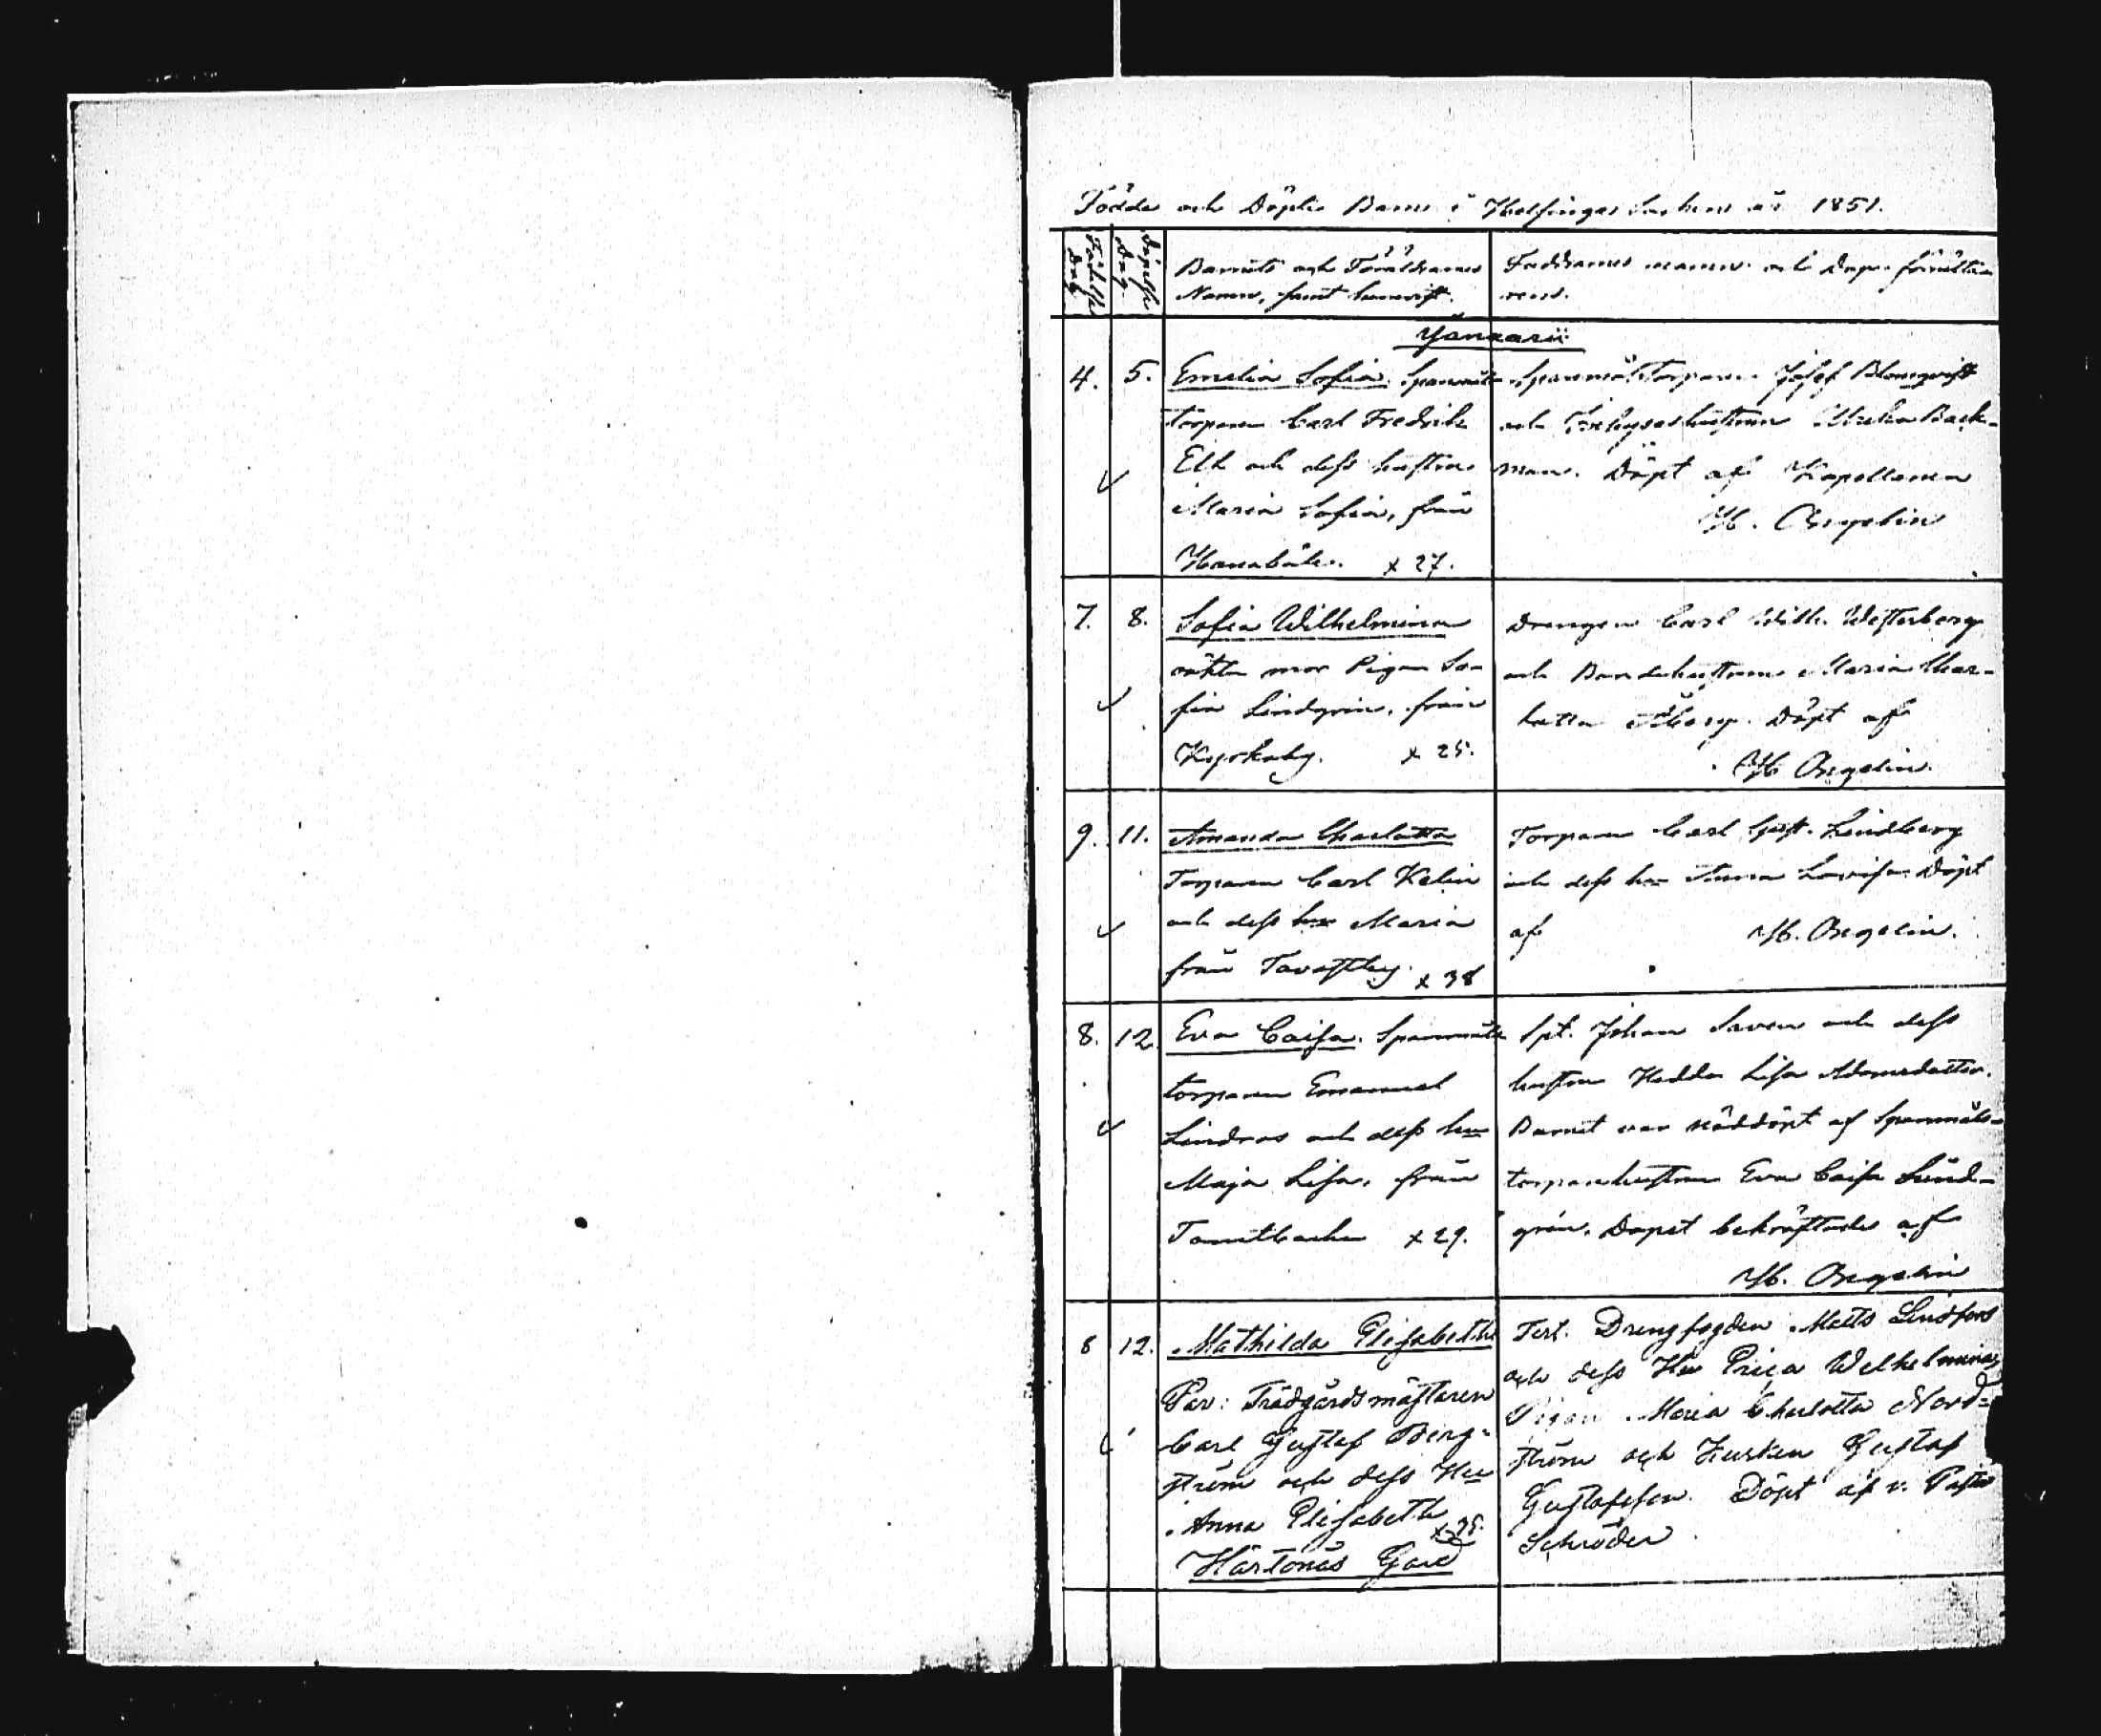 Födde och Döpte Barn i Helsinge Sochn år 1851.
Födelse Dag
Döpelse Dag
Barnets och Föräldrarnes
Namn, samt hemvist.
Faddrarnes namn och Dop-förrätta-
rens.
Januarii
4. 5. Emelia Sofia. Spanmåls
torparen Carl Fredrik
Ek och dess hustru
Maria Sofia, från
Hanaböle. x 27.
Spanmålstorparen Josef Blomqvist
och hustrun Ulrika Back-
man. Döpt af Kapellanen
H. Argelin
7. 8. Sofia Wilhelmina
oäkta mor Pigan So-
fia Lindgrén, från
Kyrkoby. x 25.
Drengen Carl Wilh. Westerberg
och Bondehustrun Maria Char-
lotta Åberg. Döpt af
H. Argelin.
9. 11. Amanda Charlotta
Torparen Carl Velin
och dess hu Maria
från Tavastby. x 38
Torparen Carl Gust. Lindberg
och dess hu Anna Lovisa. Döpt
af H. Argelin.
8. 12. Eva Caisa. Spanmåls
torparen Emanuel
Lindros och dess hu
Maja Lisa, från
x 29.
Spt. Johan Saven och dess
hustru Hedda Lisa Adamsdotter.
Barnet var nöddöpt af Spanmåls-
torparehustrun Eva Caisa Lind-
grén. Dopet bekräftades af
H. Argelin
8 12. Mathilda Elisabeth
Par: Trädgårdsmästaren
Carl Gustaf Berg-
ström och dess Hu
Anna Elisabeth
x 25.
Hertonäs Gård
Test. Drengfogden Matts Lindfors
och dess Hu Erica Wilhelmina,
Pigan Maria Charlotta Nord-
ström och Kusken Gustaf
Gustafsson. Döpt af v. Pastor
Schröder